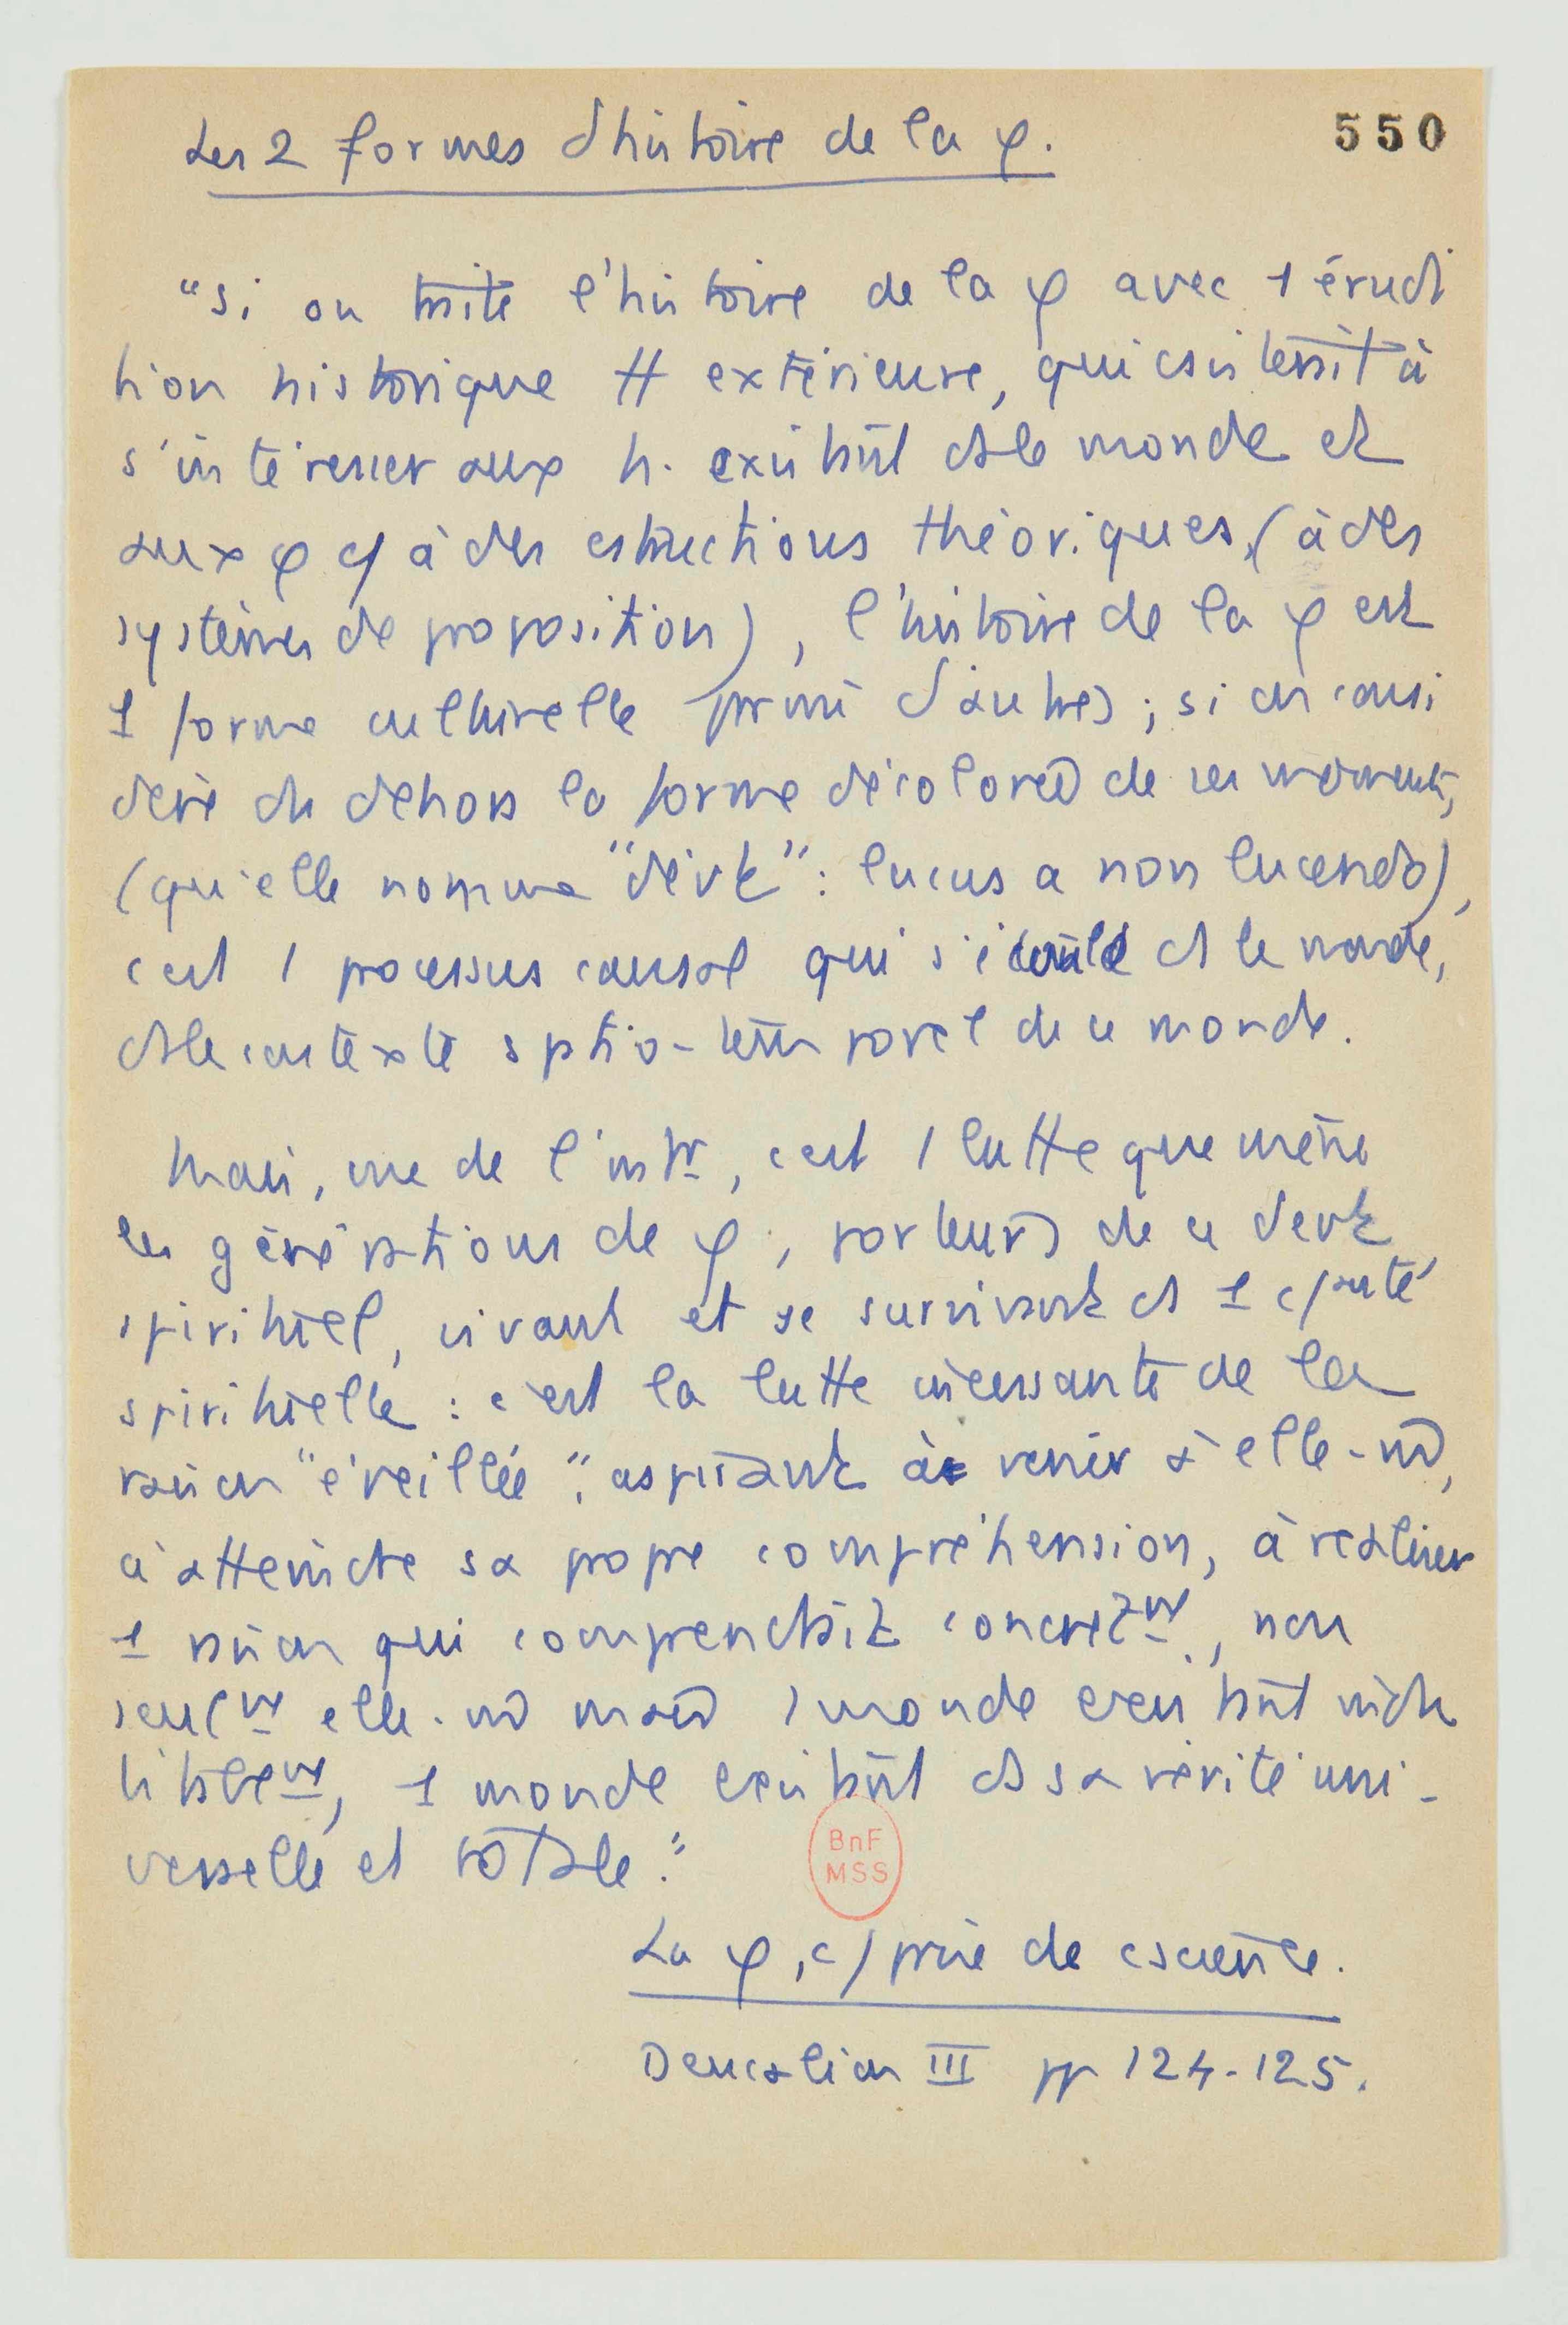 Les 2 formes d'histoire de la φ.
550
"Si on traite l'histoire de la φ avec 1 érudi
tion historique tt extérieure, qui csisterait à
s'intéresser aux h. existant ds le monde et
aux φ c/ à des cstructions théoriques, (à des
systèmes de proposition), l'histoire de la φ est
1 forme culturelle parmi d'autres ; si on consi
dère du dehors la forme décolorée de ses moments,
(qu'elle nomme "devt" : lucus a non lucendo),
c'est 1 processus causal qui s'écoule ds le monde,
ds le contexte spatio-temporel de ce monde.
Mais, vue de l'intr, c'est 1 lutte que mène
les générations de φ, porteurs de ce devt
spirituel, vivant et se survivant ds 1 c/auté
spirituelle : c'est la lutte incessante de la
raison "éveillée", aspirant à venir à elle-m̂,
à atteindre sa propre compréhension, à réaliser
1 raison qui comprendrait concrètmt, non
seulmt elle-m̂ mais 1 monde existant
1 monde existant ds sa vérité uni-
verselle et totale."
BnF
MSS
La φ, c/ prise de cscience.
Deucalion III pp 124-125.